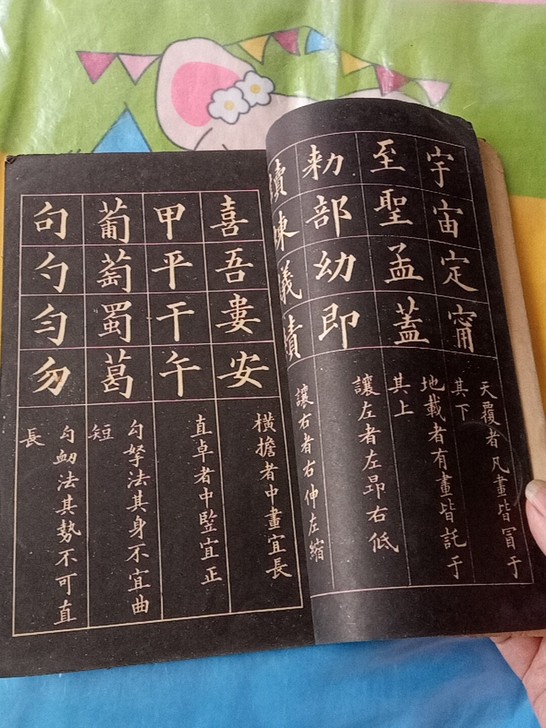 宇宙定甯
天覆者凡畫皆冒于
其下
至聖孟蓋
地載者有畫皆託于
其上
勑部幼即
讓左者左昂右低
議
讓右者右伸左縮
喜吾婁安
橫擔者中畫宜長
甲平干午
直卓者中竪宜正
葡萄蜀葛
勾拏法其身不宜曲
短
句勺勻勿
勾衂法其勢不可直
長